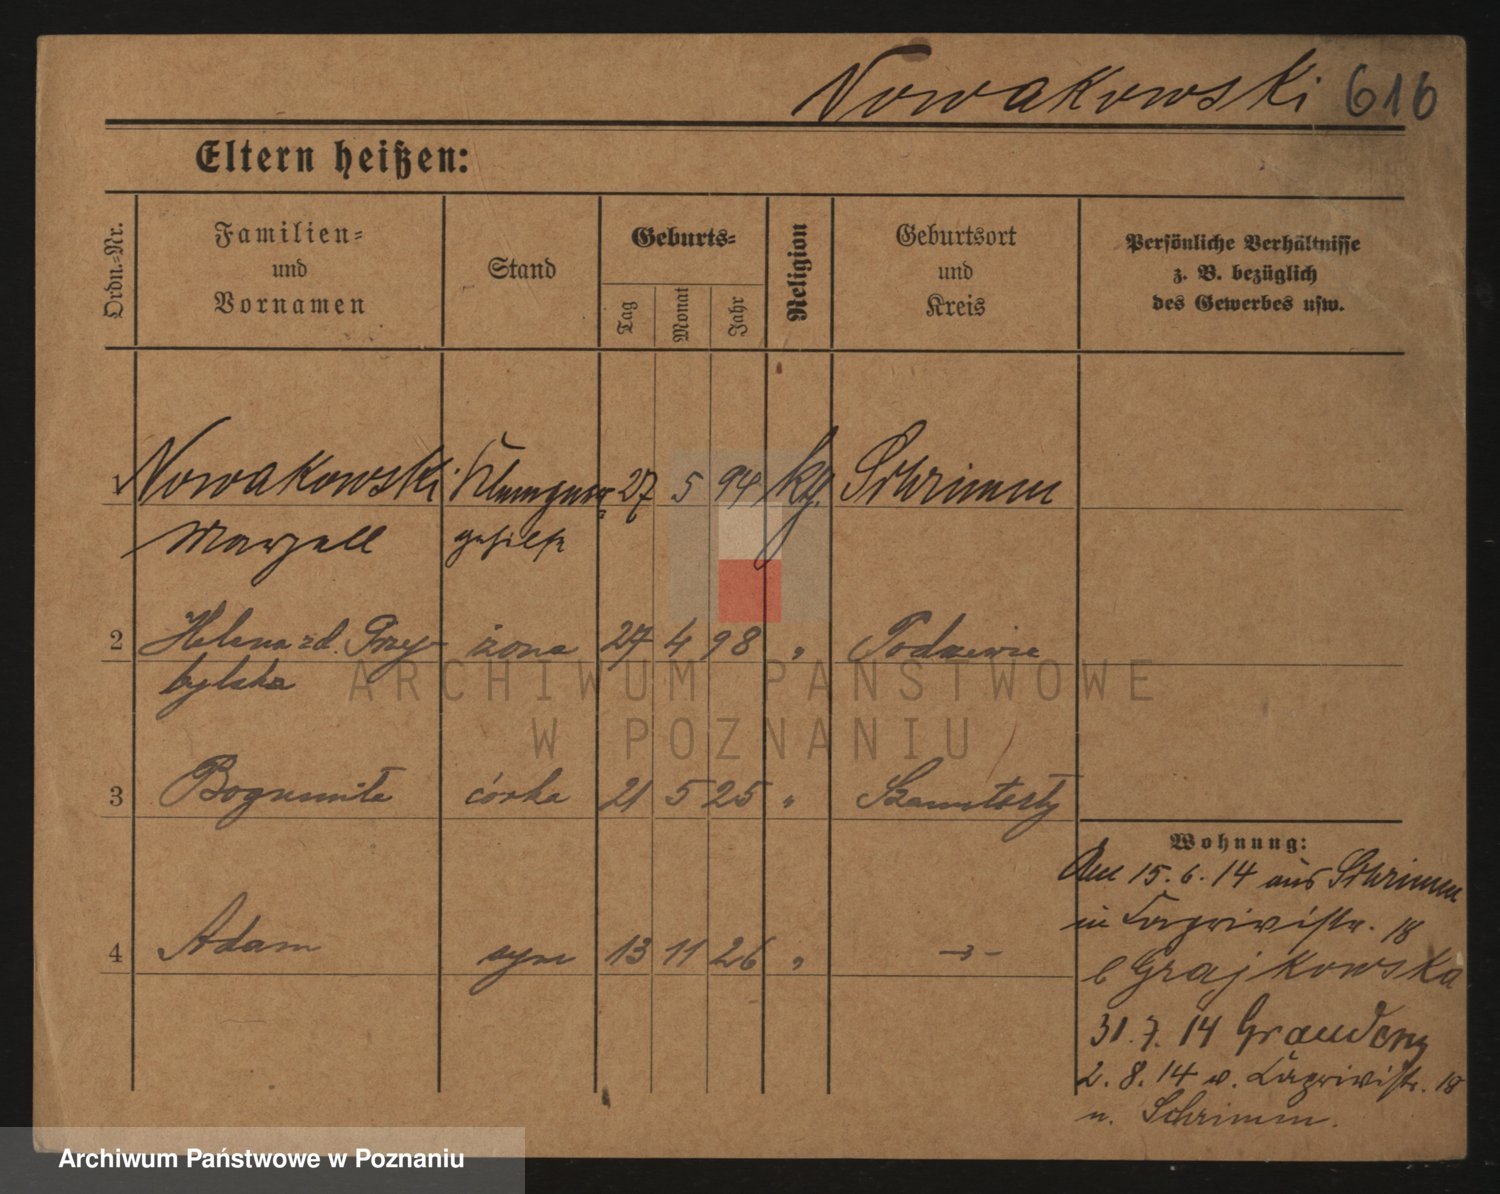 Nowakowski 616
Eltern heißen:
Ordn.-Nr.
Familien- und Vornamen
Stand
Geburts-
Tag
Monat
Jahr
Religion
Geburtsort und Kreis
Persönliche Verhältnisse
z. B. bezüglich
des Gewerbes usw.
1 Nowakowski Klempner 27 5 94 kg. Schrimm
Marzell gehilfe
2 Helena zd. Przy- żona 27 4 98 "
bylska
3 Bogumiła córka 21 5 25 " Szamotuły
4 Adam syn 13 11 26 " -"-
Wohnung:
Am 15.6.14 aus Schrimm
in 18
b Grajkowska
31.7.14 Graudenz
2.8.14 v. 18
n. Schrimm.
ARCHIWUM PAŃSTWOWE
W POZNANIU
Archiwum Państwowe w Poznaniu